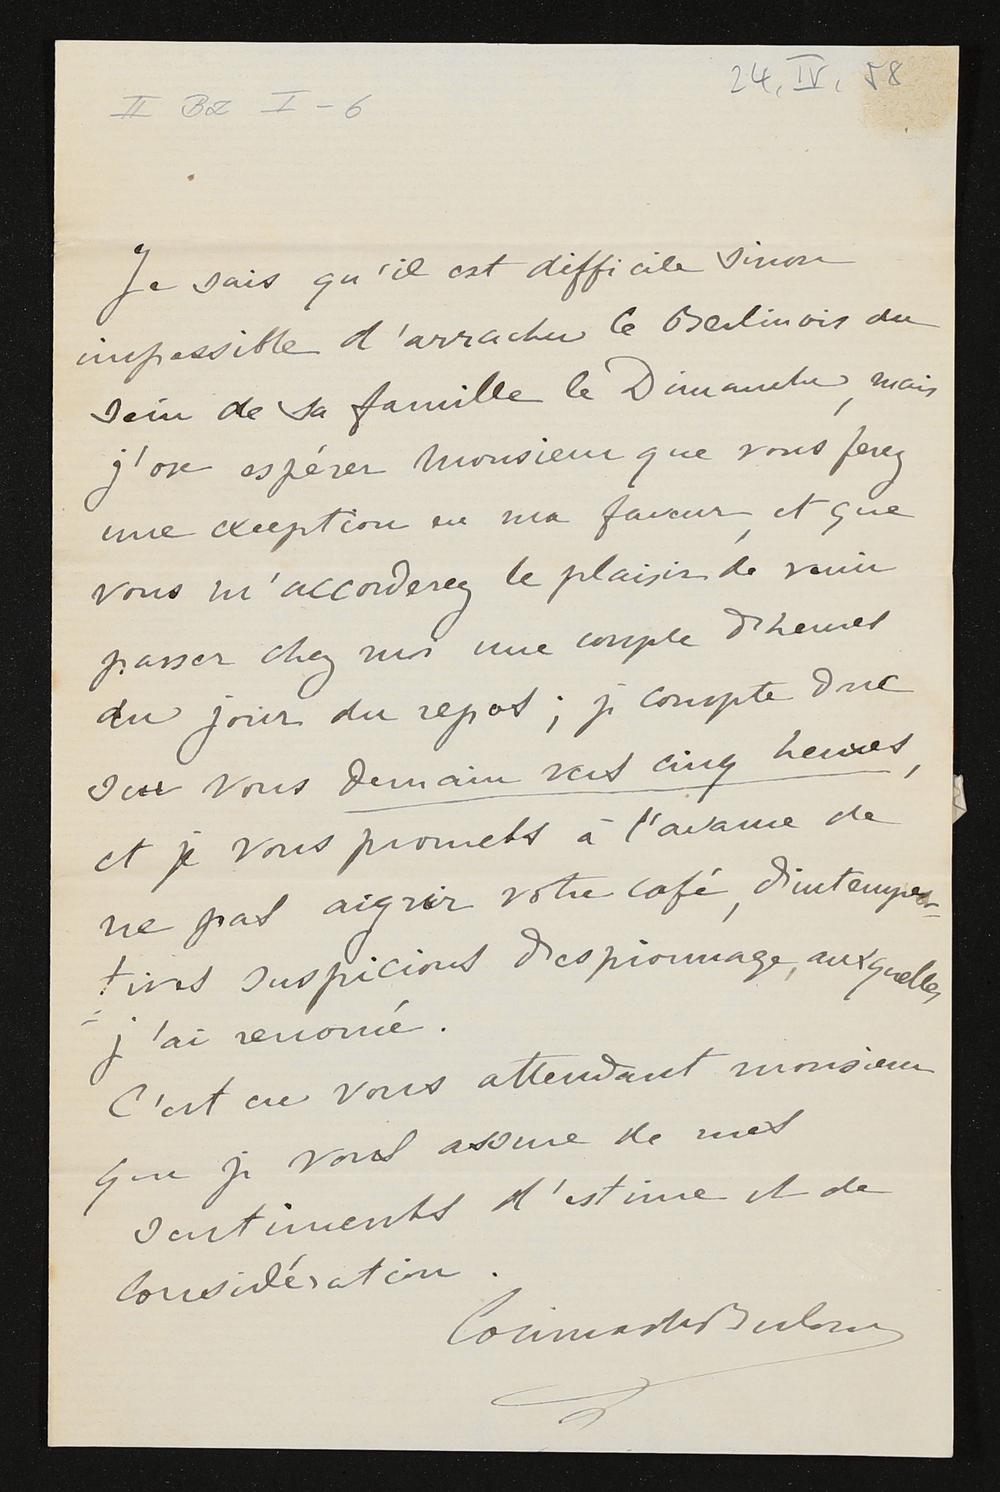 24. IV. 58
II Bz I - 6
Je sais qu'il est difficile sinon
impossible d'arracher le Berlinois du
sein de sa famille le Dimanche, mais
j'ose espérer Monsieur que vous ferez
une exeption en ma faveur, et que
vous m'accorderez le plaisir de venir
passer chez moi une couple d'heures
du jour du repos; je compte donc
sur vous demain vers cinq heures,
et je vous promets à l'avance de
ne pas aigrir votre café, d'intempes-
tives suspicions d'espionnage, auxquelles
j'ai renoncé.
C'est en vous attendant monsieur
que je vous assure de mes
sentiments d'estime et de
considération.
Cosima de Bulow